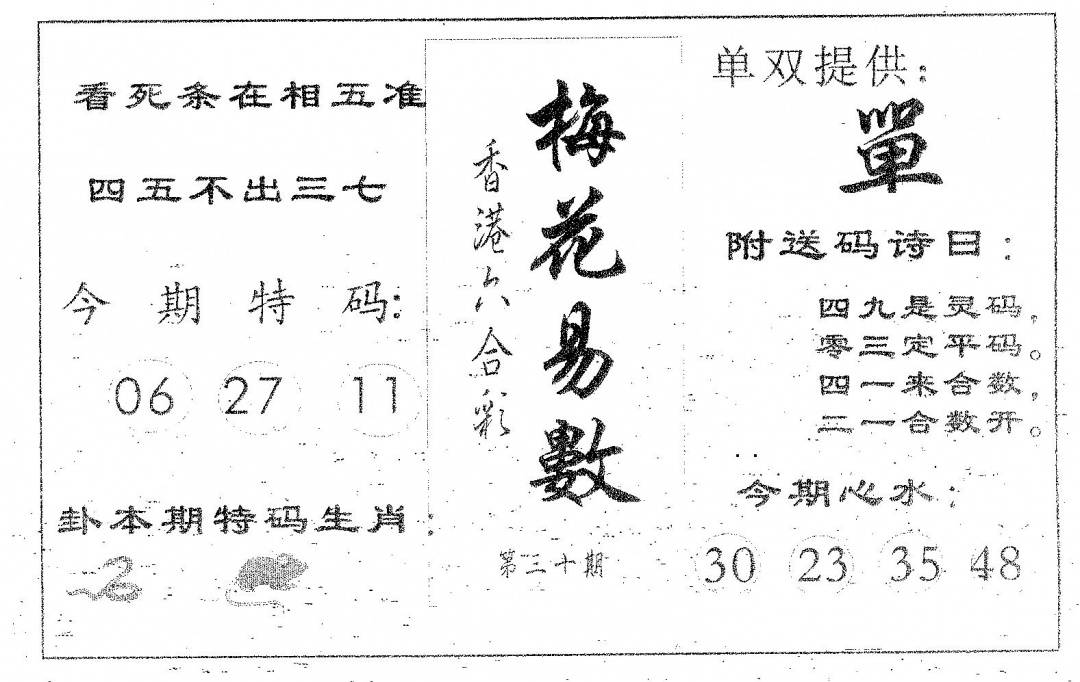 看死条在相五准
四五不出三七
今期特码:
06 27 11
卦本期特码生肖:
香港六合彩
梅花易數
第三十期
单双提供:
單
附送码诗曰:
四九是灵码,
零三定平码。
四一来合数,
三一合数开。
今期心水:
30 23 35 48